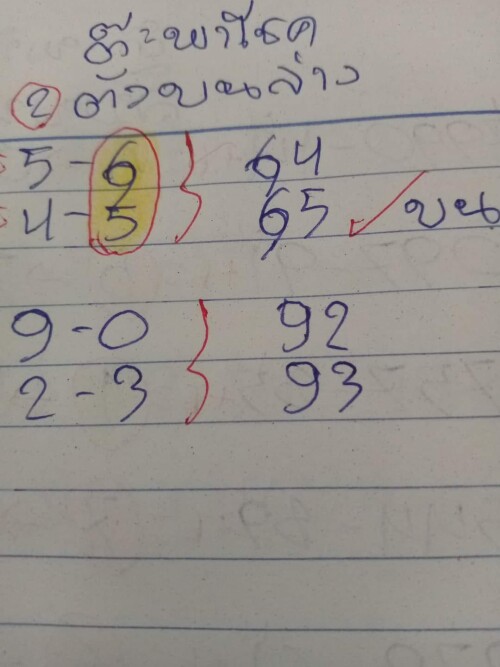 ต๊ะพาโชค
2 ตัวบนล่าง
5-6 } 64
4-5 } 65 ✓ บน
9-0 } 92
2-3 } 93